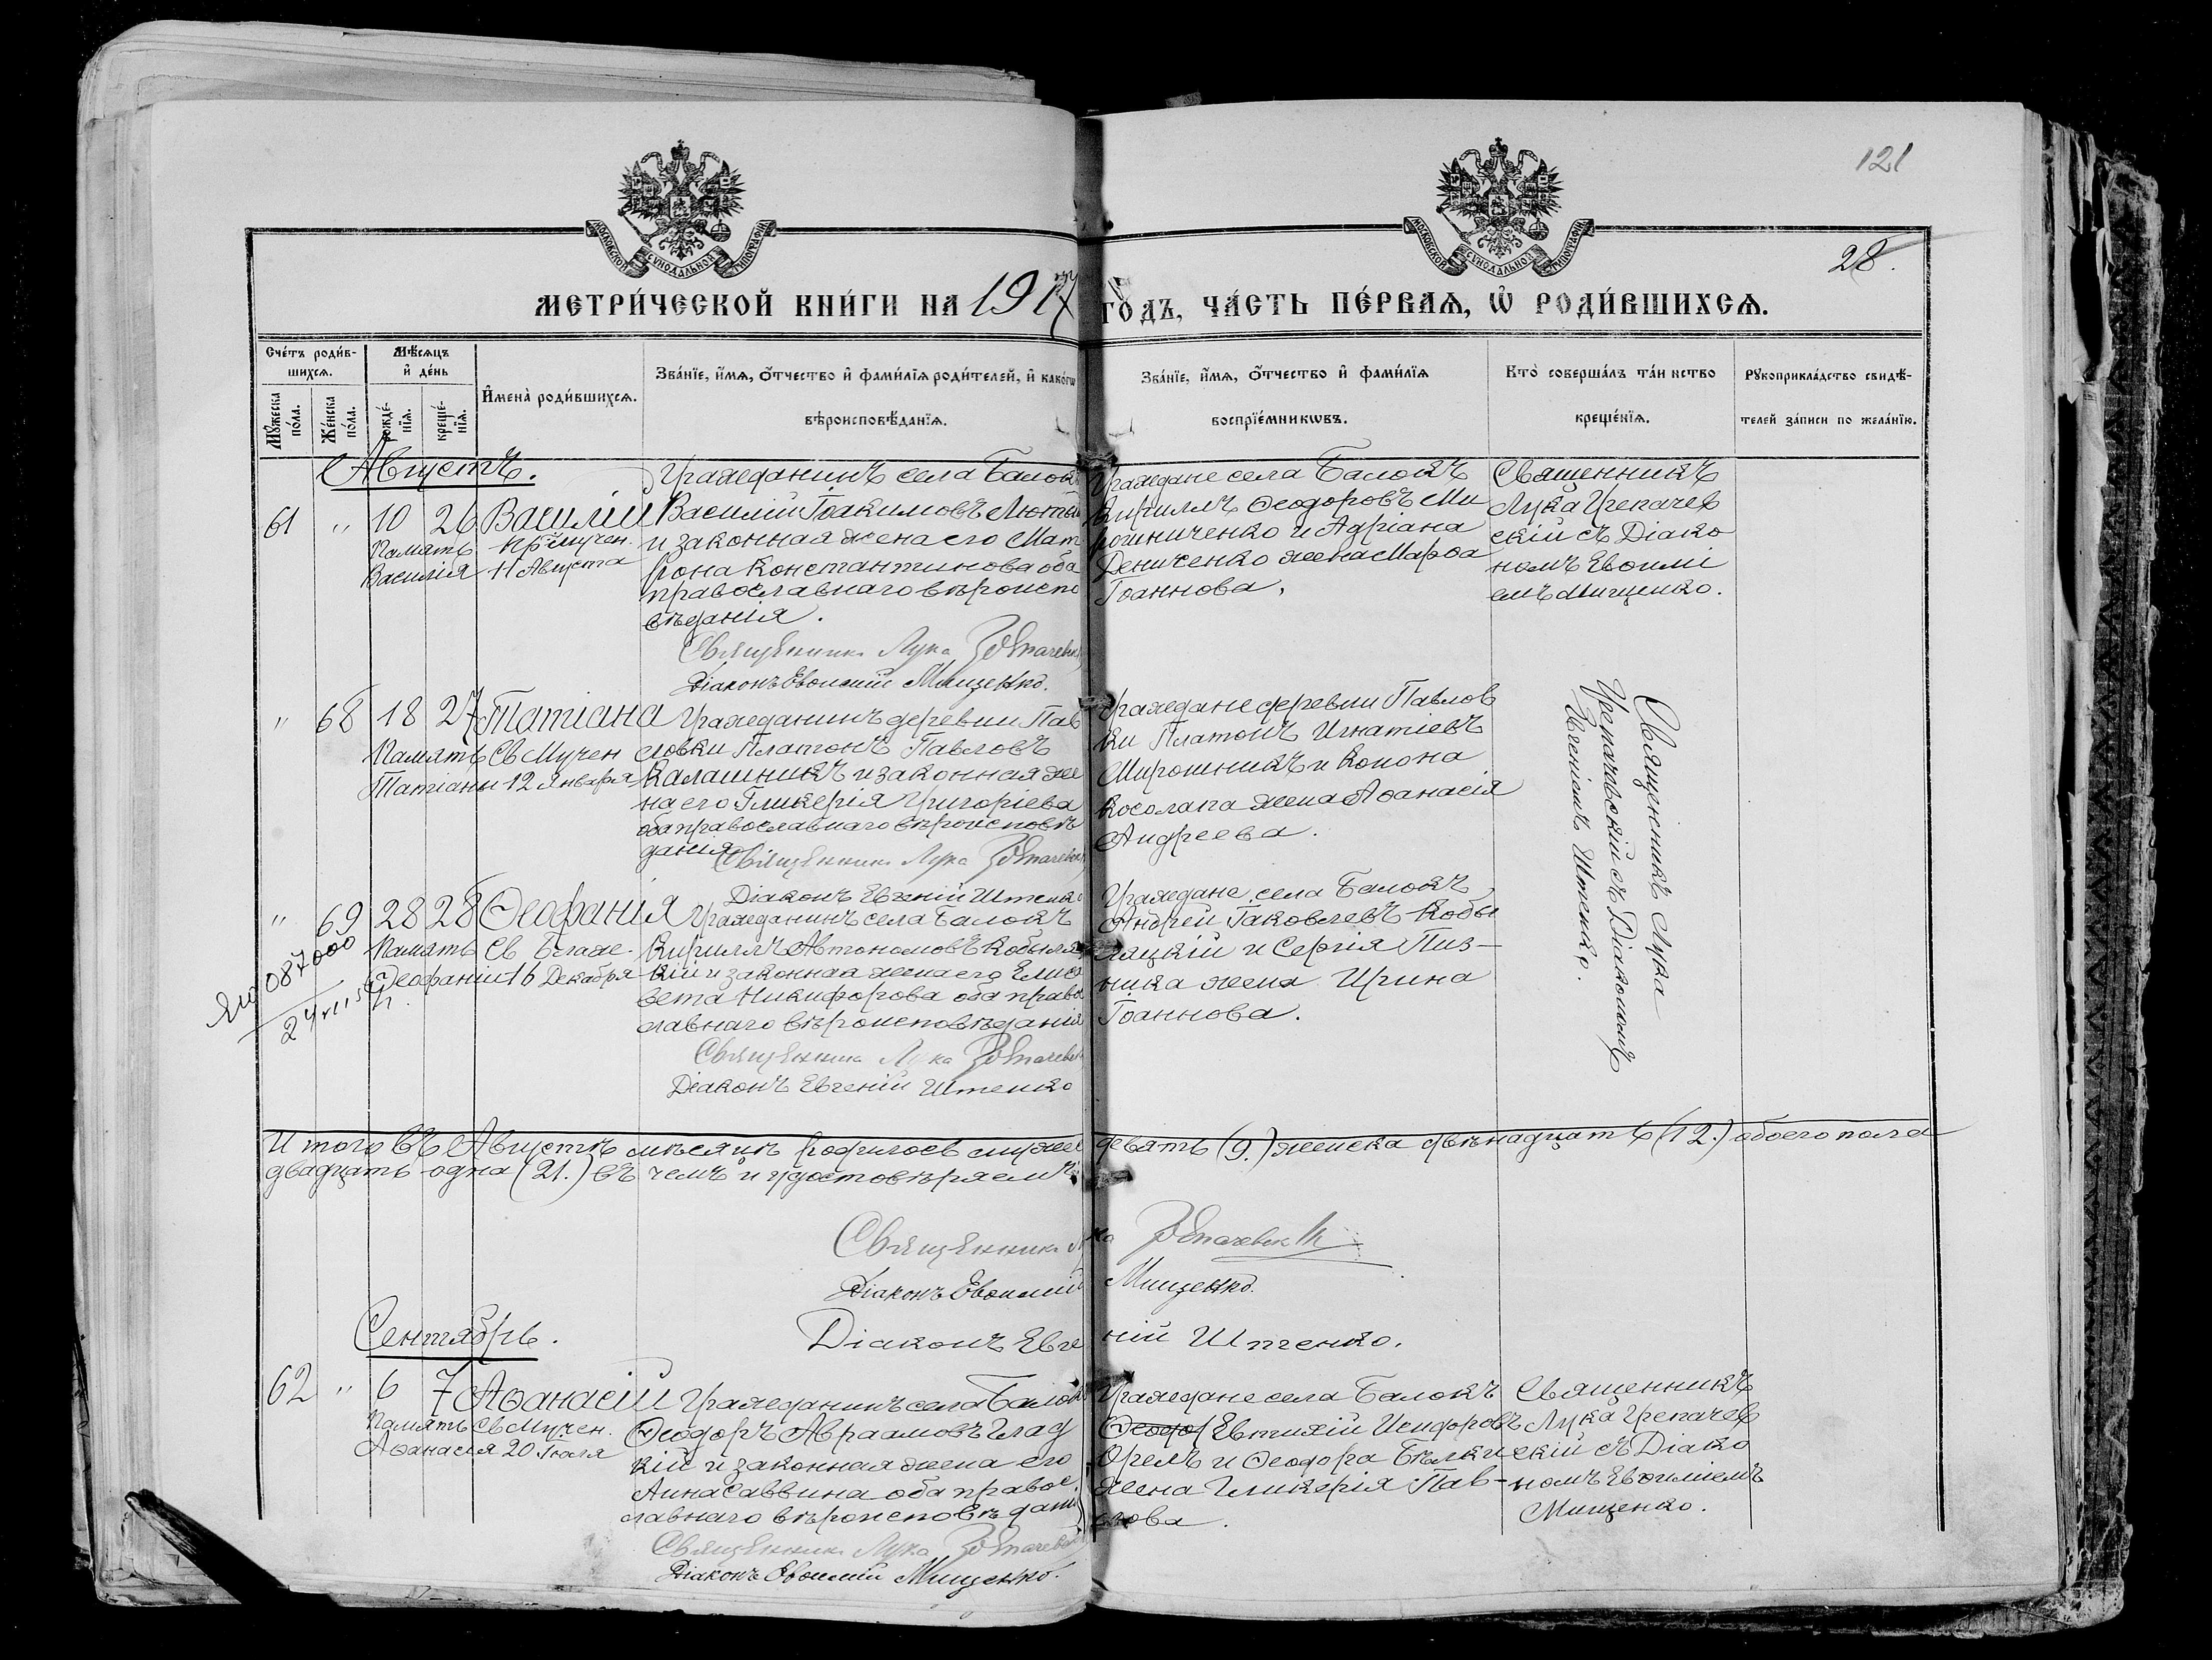 121
28.
МЕТРИ́ЧЕСКОЙ КНИ́ГИ НА 1917 ГО́ДЪ, ЧА́СТЬ ПЕ́РВАЯ, Ѽ РОДИ́ВШИХСЯ.
Сче́тъ роди́в-
шихся.
Мѣ́сяцъ
и҆ де́нь
Му́жеска
по́ла.
Же́нска
по́ла.
рожде́-
нїя.
креще́-
нїя.
И҆мена̀ роди́вшихся.
Зва́нїе, и҆́мя, о҆́тчество и҆ фами́лїя роди́телей, и҆ како́гѡ
вѣроисповѣ́данїя.
Зва́нїе, и҆́мя, о҆́тчество и҆ фами́лїя
воспрїе́мникѡвъ.
Кто̀ соверша́лъ та́инство
креще́нїя.
Рꙋкоприкла́дство свидѣ́-
телей за́писи по жела́нїю.
Августъ.
61 " 10 26 Василій
Память прмучен.
Василія 11 Августа
Гражданинъ села Балокъ
Василій Іоакимовъ Лютый
и законная жена его Мат
рона Константинова оба
православнаго вѣроиспо
вѣданія.
Священникъ Лука
Діаконъ Евѳимій Мищенко.
Граждане села Балокъ
Кириллъ Ѳеодоровъ Ми
рошниченко и Адріана
Дениченко жена Марѳа
Іоаннова.
Священникъ
Лука Грепачев
скій съ Діако
номъ Евѳимі
емъ Мищенко.
" 68 18 27 Татіана
Память Св Мучен
Татіаны 12 Января
Гражданинъ деревни Пав
ловки Платонъ Павловъ
Калашникъ и законная же
на его Гликерія Григоріева
оба православнаго вѣроисповѣ
данія
Священникъ Лука
Діаконъ Евгеній Штенко
Граждане деревни Павлов
ки Платонъ Игнатіевъ
Мирошникъ и Конона
Косолапа жена Аѳанасія
Андреева.
Священникъ Лука
Грепачевскій съ Діакономъ
Евгеніемъ Штенко.
" 69 28 28 Ѳеофанія
Память Св блаже-
Ѳеофаніи 16 Декабря
Гражданинъ села Балокъ
Кириллъ Автономовъ Кобыляц
кій и законная жена его Елиса
вета Никифорова оба право
славнаго вѣроисповѣданія
Священникъ Лука
Діаконъ Евгеній Штенко
Граждане села Балокъ
Андрей Іаковлевъ Кобы
ляцкій и Сергія Пиз-
ника жена Ирина
Іоаннова.
Итого въ Августѣ мѣсяцѣ родилось муже девять (9.) женска двѣнадцать (12.) обоего пола
двадцать одна (21.) въ чемъ и удостовѣряемъ:
Священникъ Лука
Діаконъ Евѳимій Мищенко.
Діаконъ Евгеній Штенко.
Сентябрь.
62 " 6 7 Аѳанасій
Память Св Мучен.
Аѳанасія 20 Іюля
Гражданинъ села Балокъ
Ѳеодоръ Авраамовъ Глад
кій и законная жена его
Анна Саввина оба право
славнаго вѣроисповѣдан
Священникъ Лука
Діаконъ Евѳимій Мищенко.
Граждане села Балокъ
Ѳеодо Евтихій Исидоровъ
Орелъ и Ѳеодора Бѣлки
жена Гликерія Пав-
лова.
Священникъ
Лука Грепачев
скій съ Діако
номъ Евѳиміемъ
Мищенко.